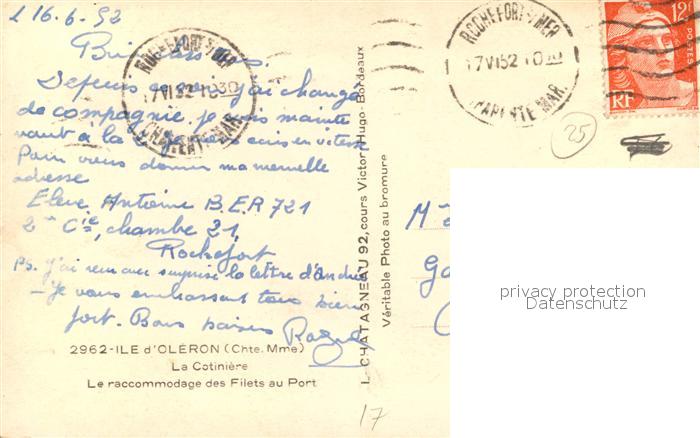 L 16.6.52
Depuis j'ai changé
de compagnie, je suis mainte
nant à la écris en vitesse
Pour vous donner ma nouvelle
adresse
Eleve Antoine B.E.R 721
2me Cie, chambre 21,
Rochefort
PS. j'ai reçu avec surprise la lettre d'André
- Je vous embrassant tous bien
fort. Bons baisers
2962-ILE d'OLÉRON (Chte. Mme)
La Cotinière
Le raccommodage des Filets au Port
ROCHEFORT S/MER
17 VI 52 18 30
CHARENTE MAR.
L. CHATAGNEAU 92, cours Victor Hugo-Bordeaux
Véritable Photo au bromure
ROCHEFORT S/MER
17 VI 52 18 30
CHARENTE MAR.
12F
POSTES
RF
25
M
Ga
privacy protection
Datenschutz
17